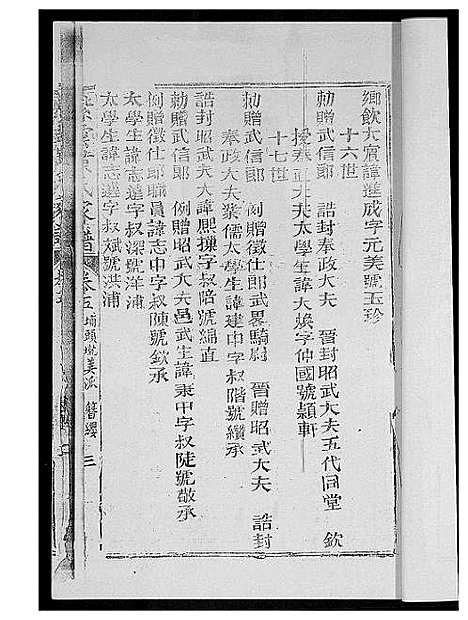 鄉飲大賔諱進成字元美號玉珍
十六世
勅贈武信郎 誥封奉政大夫 晉封昭武大夫五代同堂 欽
授奉政大夫太學生諱大煥字仲國號頴軒
十七世
勅贈武信郎 例贈徵仕郎武畧騎尉 晉贈昭武大夫 誥封
奉政大夫業儒太學生諱建中字叔階號纘承
誥封昭武大夫諱熙揀字叔昭號絹直
勅贈武信郎 例贈昭武大夫邑武生諱秉中字叔陡號敬承
例贈徵仕郎職員諱志中字叔陳號欽承
太學生諱志達字叔深號洋浦
太學生諱志選字叔斌號淇浦
氏家譜 卷五 埔頭坑美派 簪纓 三